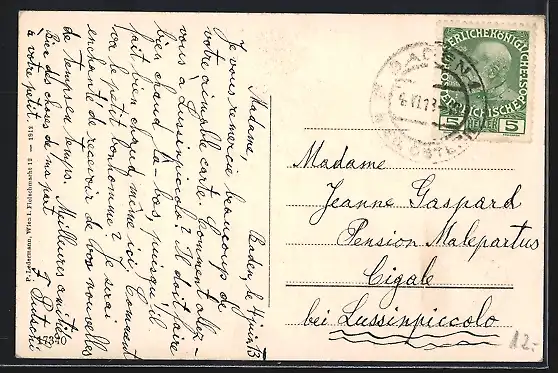 Baden, le 4 juin 13
Madame,
Je vous remercie beaucoup de
votre aimable carte. Comment allez-
vous à Lussinpiccolo? Il doit faire
bien chaud là-bas, puisqu'il
fait bien chaud même ici. Comment
va le petit bonhomme? Je serai
enchanté de recevoir de bon nouvelles
de temps en temps. Meilleures amitiés
Bien des choses de ma part
à votre petit.
P. Ledermann, Wien I. Fleischmarkt 12 — 1912
BADEN 1
KAISERLICHE KÖNIGLICHE ÖSTERREICHISCHE POST
5 HELLER 5
Madame
Jeanne Gaspard
Pension Malepartus
Cigale
bei Lussinpiccolo
12.-